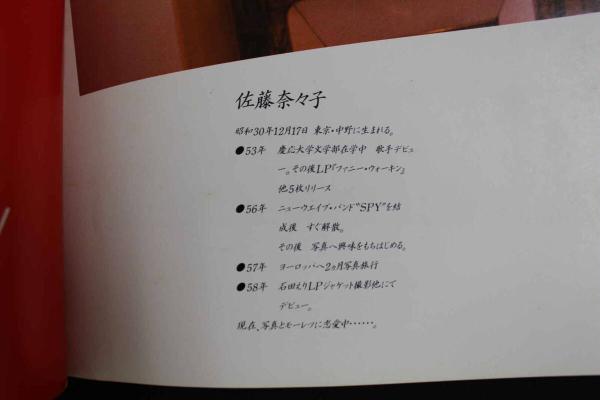 佐藤奈々子
昭和30年12月17日 東京・中野に生まれる。
●53年 慶応大学文学部在学中 歌手デビュ
ー。その後LP『ファニー・ウォーキン』
他5枚リリース
●56年 ニューウエイブ・バンド"SPY"を結
成後 すぐ解散。
その後 写真へ興味をもちはじめる。
●57年 ヨーロッパへ2ヶ月写真旅行
●58年 石田えりLPジャケット撮影他にて
デビュー。
現在、写真とモーレツに恋愛中……。